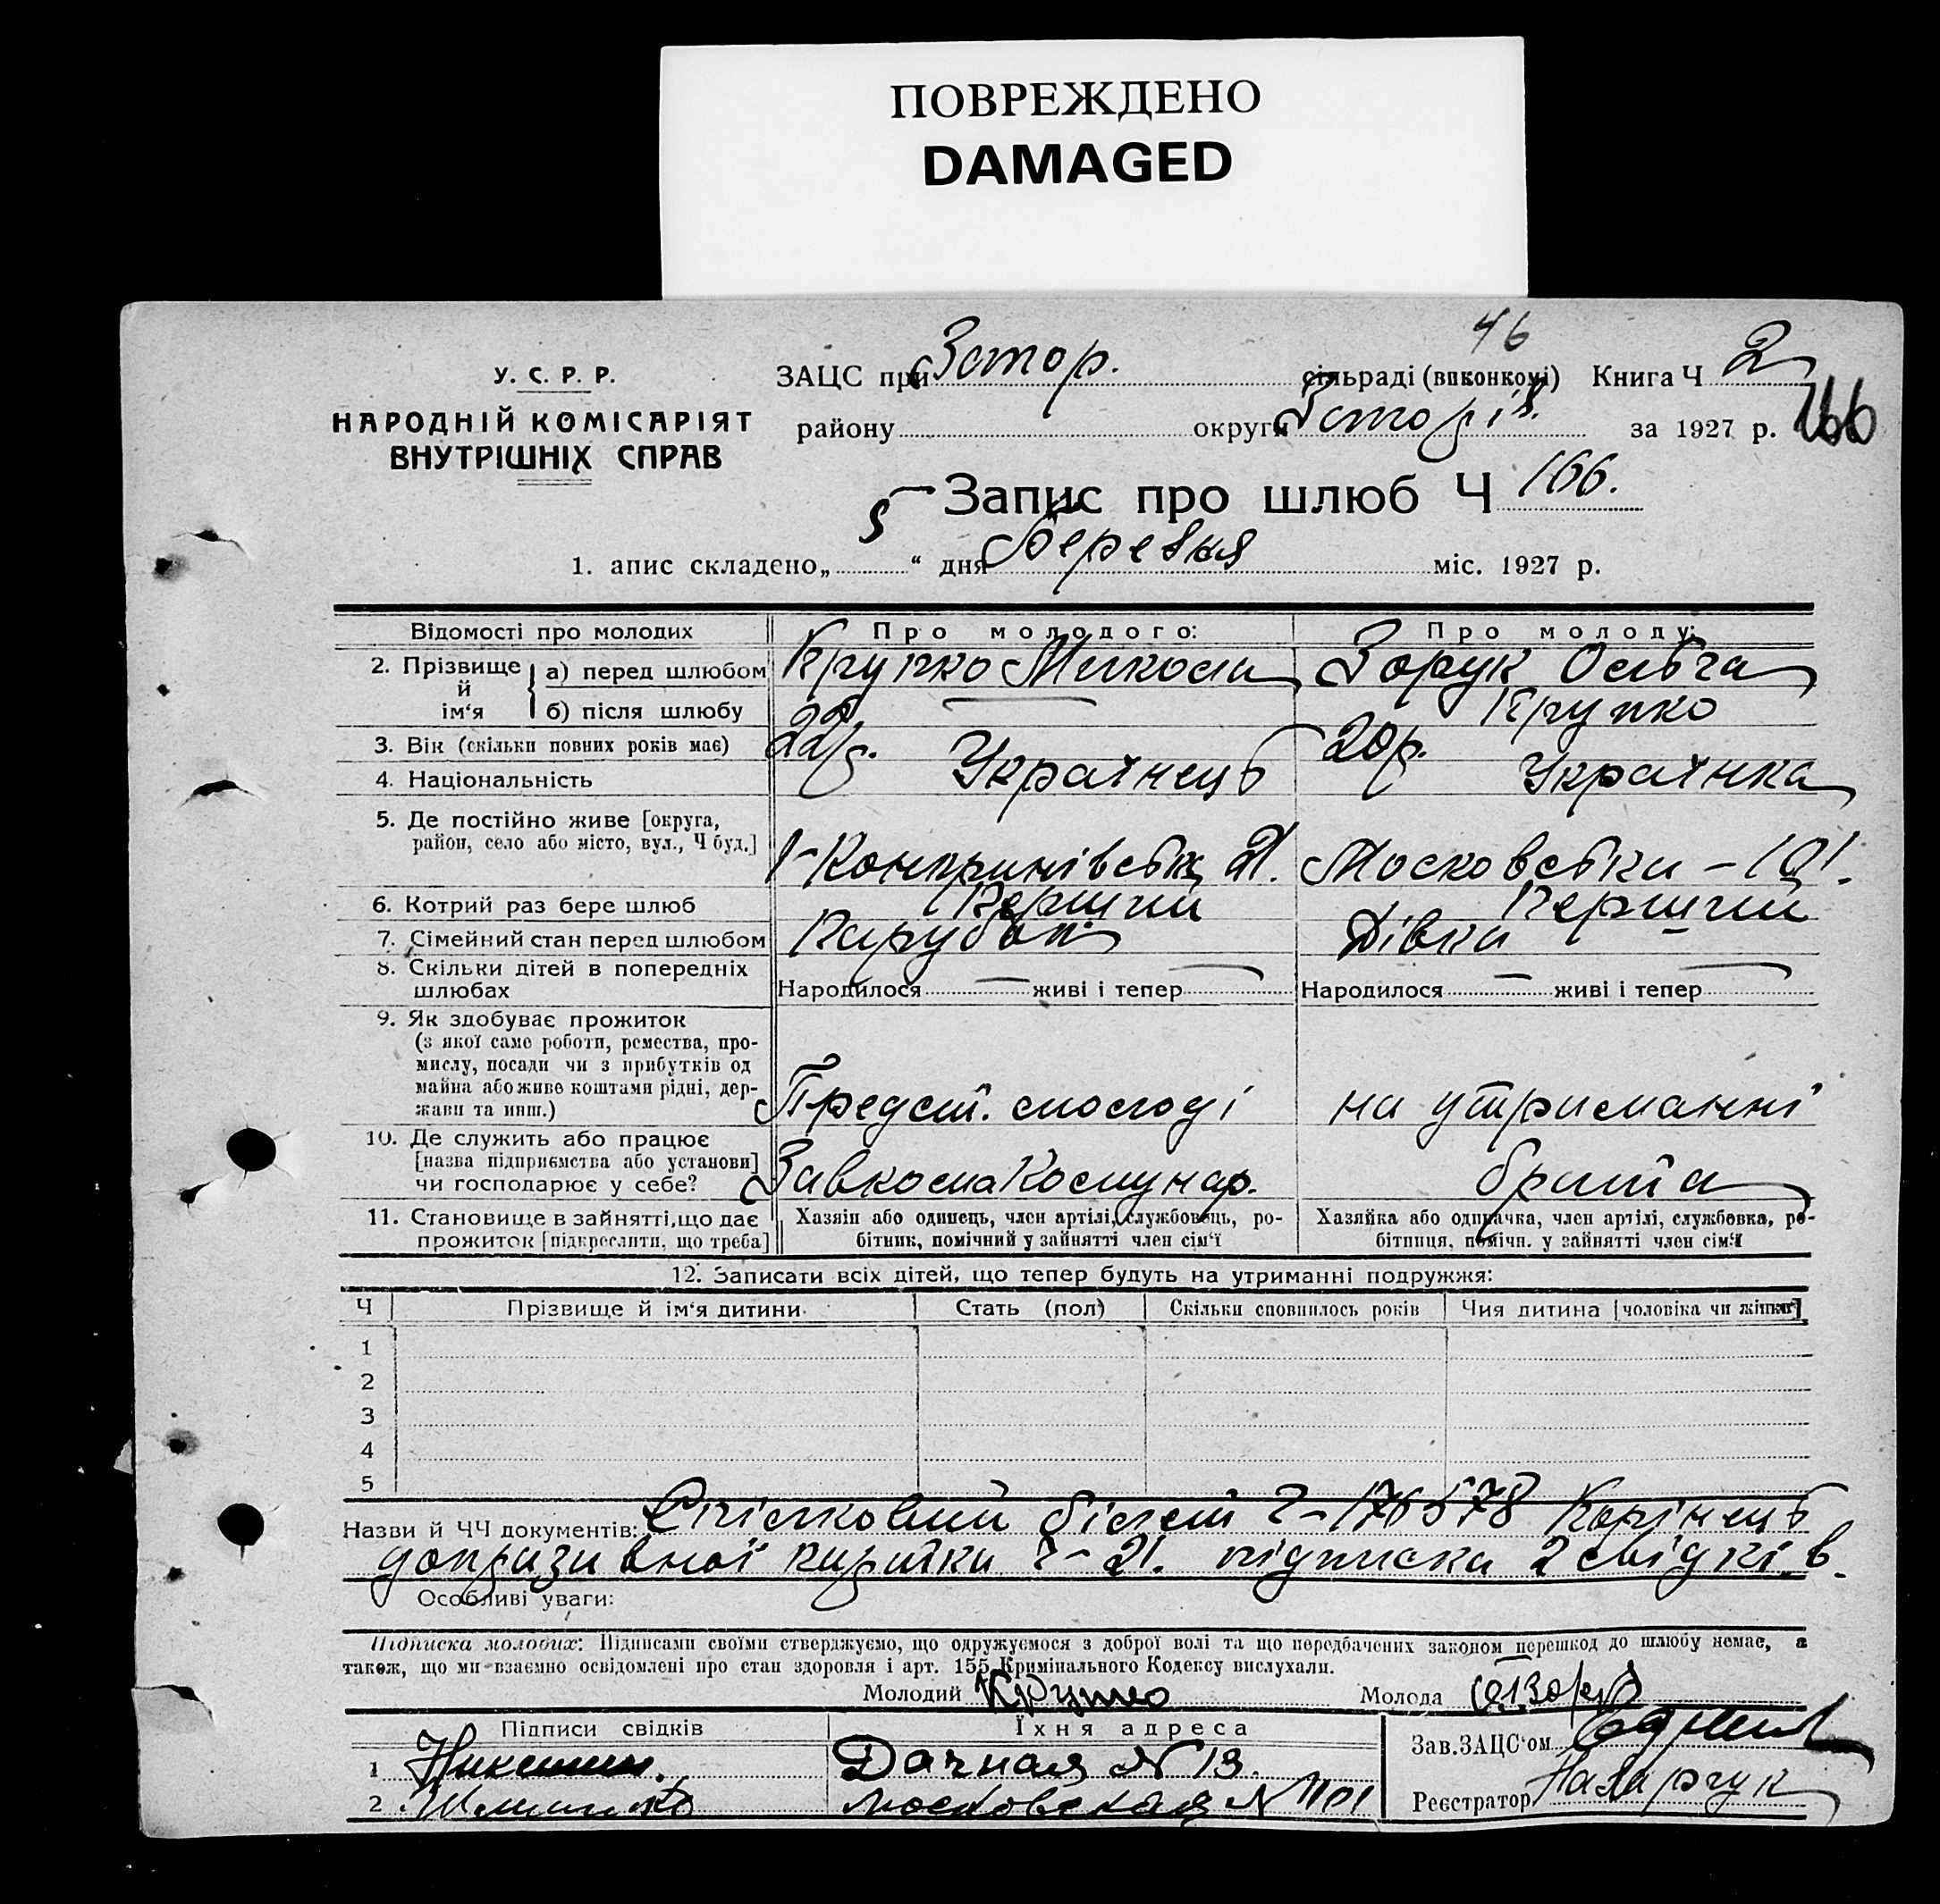 ПОВРЕЖДЕНО
DAMAGED
46
У. С. Р. Р.
НАРОДНІЙ КОМІСАРІЯТ
ВНУТРІШНІХ СПРАВ
ЗАЦС при Запор. сільраді (виконкомі) Книга Ч 2
району округи Запоріз. за 1927 р. 166
Запис про шлюб Ч 166.
1. апис складено „5“ дня Березня міс. 1927 р.
Відомості про молодих Про молодого: Про молоду:
2. Прізвище й ім'я а) перед шлюбом Крупко Микола Зорук Ольга
б) після шлюбу Крупко
3. Вік (скільки повних років має) 22р. 20р.
4. Національність Українець Українка
5. Де постійно живе [округа,
район, село або місто, вул., Ч буд.] 21. Московська – 101.
6. Котрий раз бере шлюб Перший Перший
7. Сімейний стан перед шлюбом Парубок Дівка
8. Скільки дітей в попередніх
шлюбах Народилося — живі і тепер — Народилося — живі і тепер —
9. Як здобуває прожиток
(з якої саме роботи, ремества, про-
мислу, посади чи з прибутків од
майна або живе коштами рідні, дер-
жави та инш.) Предст. молоді на утриманні
10. Де служить або працює
[назва підприємства або установи]
чи господарює у себе? Завкома Комунар. брата
11. Становище в зайнятті, що дає
прожиток [підкреслити, що треба]
Хазяїн або одинець, член артілі, службовець, ро-
бітник, помічний у зайнятті член сім'ї
Хазяйка або одиначка, член артілі, службовка, ро-
бітниця, помічн. у зайнятті член сім'ї
12. Записати всіх дітей, що тепер будуть на утриманні подружжя:
Ч Прізвище й ім'я дитини Стать (пол) Скільки сповнилось років Чия дитина [чоловіка чи жінки]
1
2
3
4
5
Назви й ЧЧ документів: Спілковий білет Ч–176578 Корінець
допризивної картки Ч–21. підписка 2 свідків.
Особливі уваги:
Підписка молодих: Підписами своїми стверджуємо, що одружуємося з доброї волі та що передбачених законом перешкод до шлюбу немає, а
також, що ми взаємно освідомлені про стан здоровля і арт. 155 Кримінального Кодексу вислухали.
Молодий Крупко Молода
Підписи свідків Їхня адреса
Зав. ЗАЦС'ом
1 Никитин. Дачная № 13.
2 Московская № 101
Реєстратор Назарчук